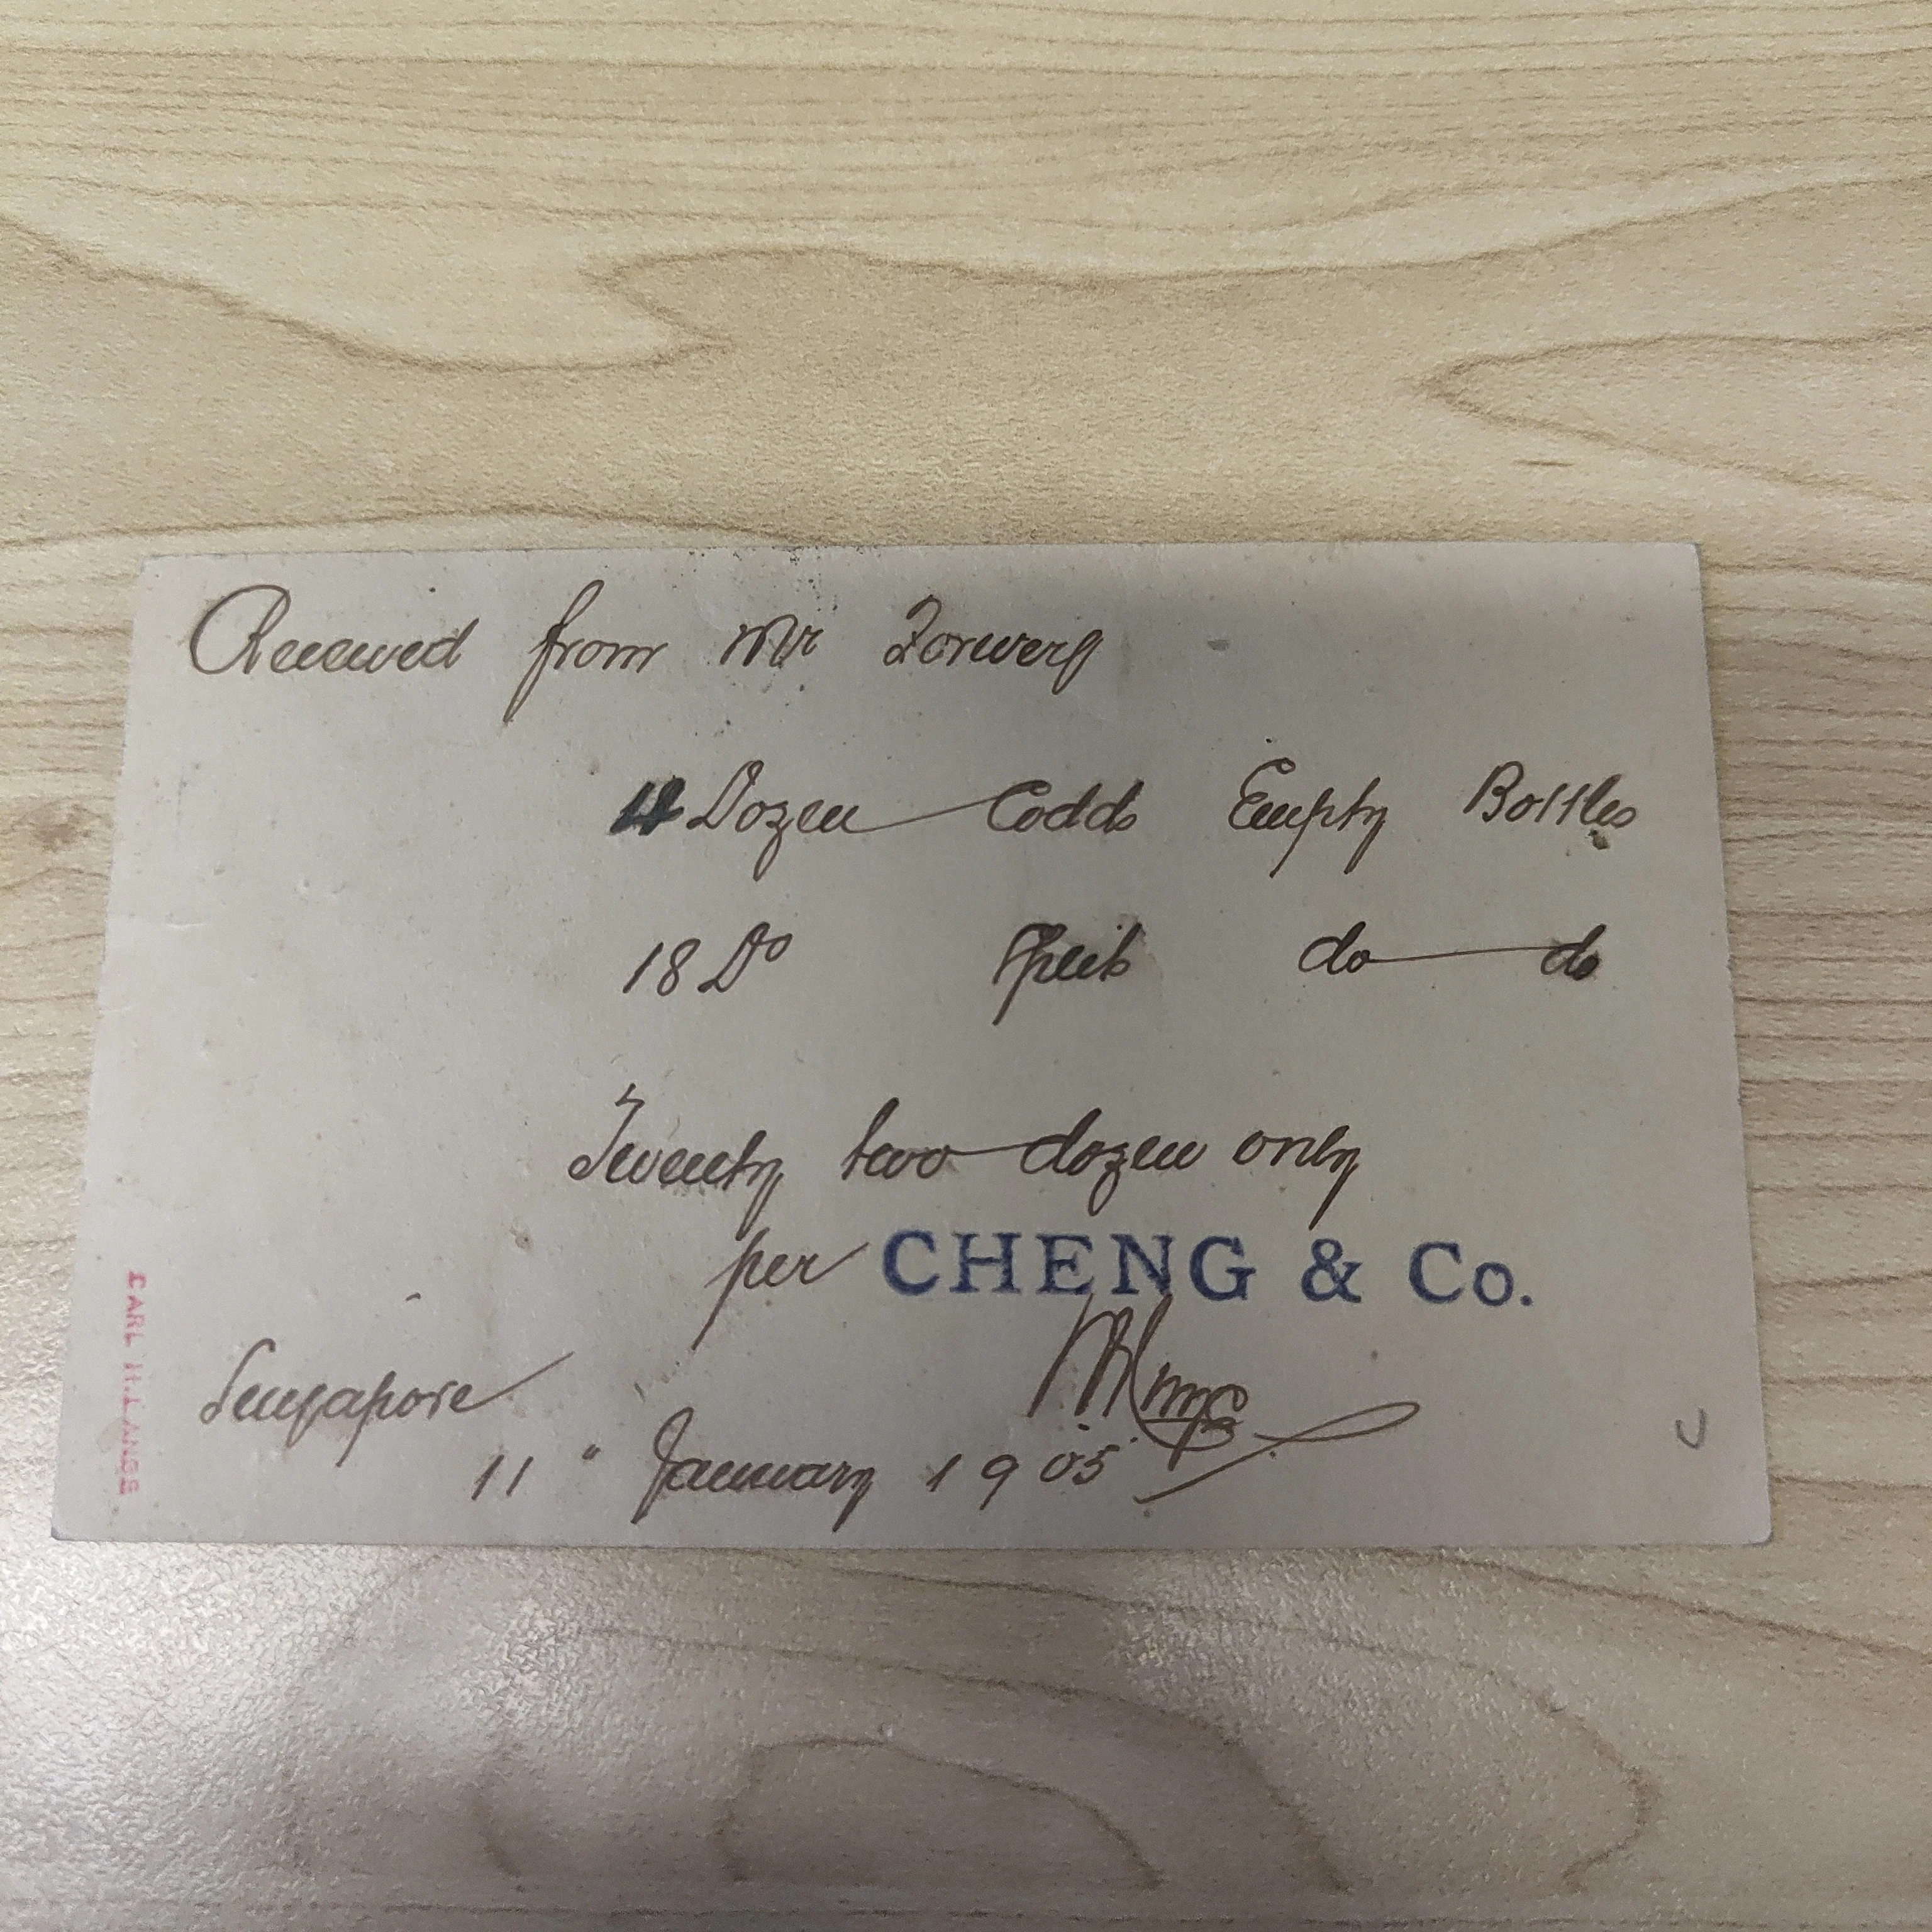 Received from Mr Zorwerg
4 Dozen Codds Empty Bottles
18 Do Split do do
Twenty two dozen only
per CHENG & Co.
Singapore
11" January 1905
CARL H. LANGE